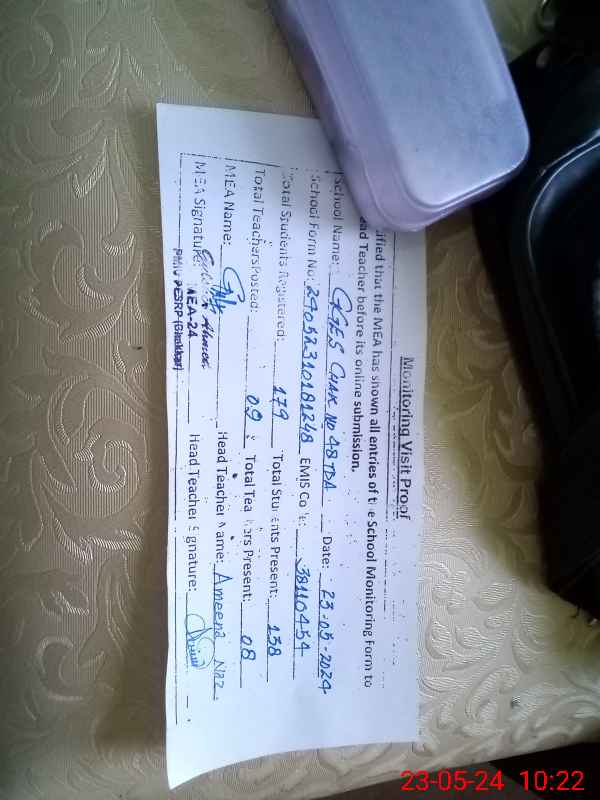 Monitoring Visit Proof
ified that the MEA has shown all entries of the School Monitoring Form to
ead Teacher before its online submission.
School Name: GGES CHAK NO 48 TDA Date: 23-05-2024
School Form No: 29052310181248 EMIS Code: 38110454
Total Students Registered: 179 Total Students Present: 138
Total Teachers Posted: 09 Total Teachers Present: 08
MEA Name: Head Teacher Name: Ameena Naz
MEA Signature: MEA-24 Head Teacher Signature:
PMIU PESRP (Bhakkar)
23-05-24 10:22